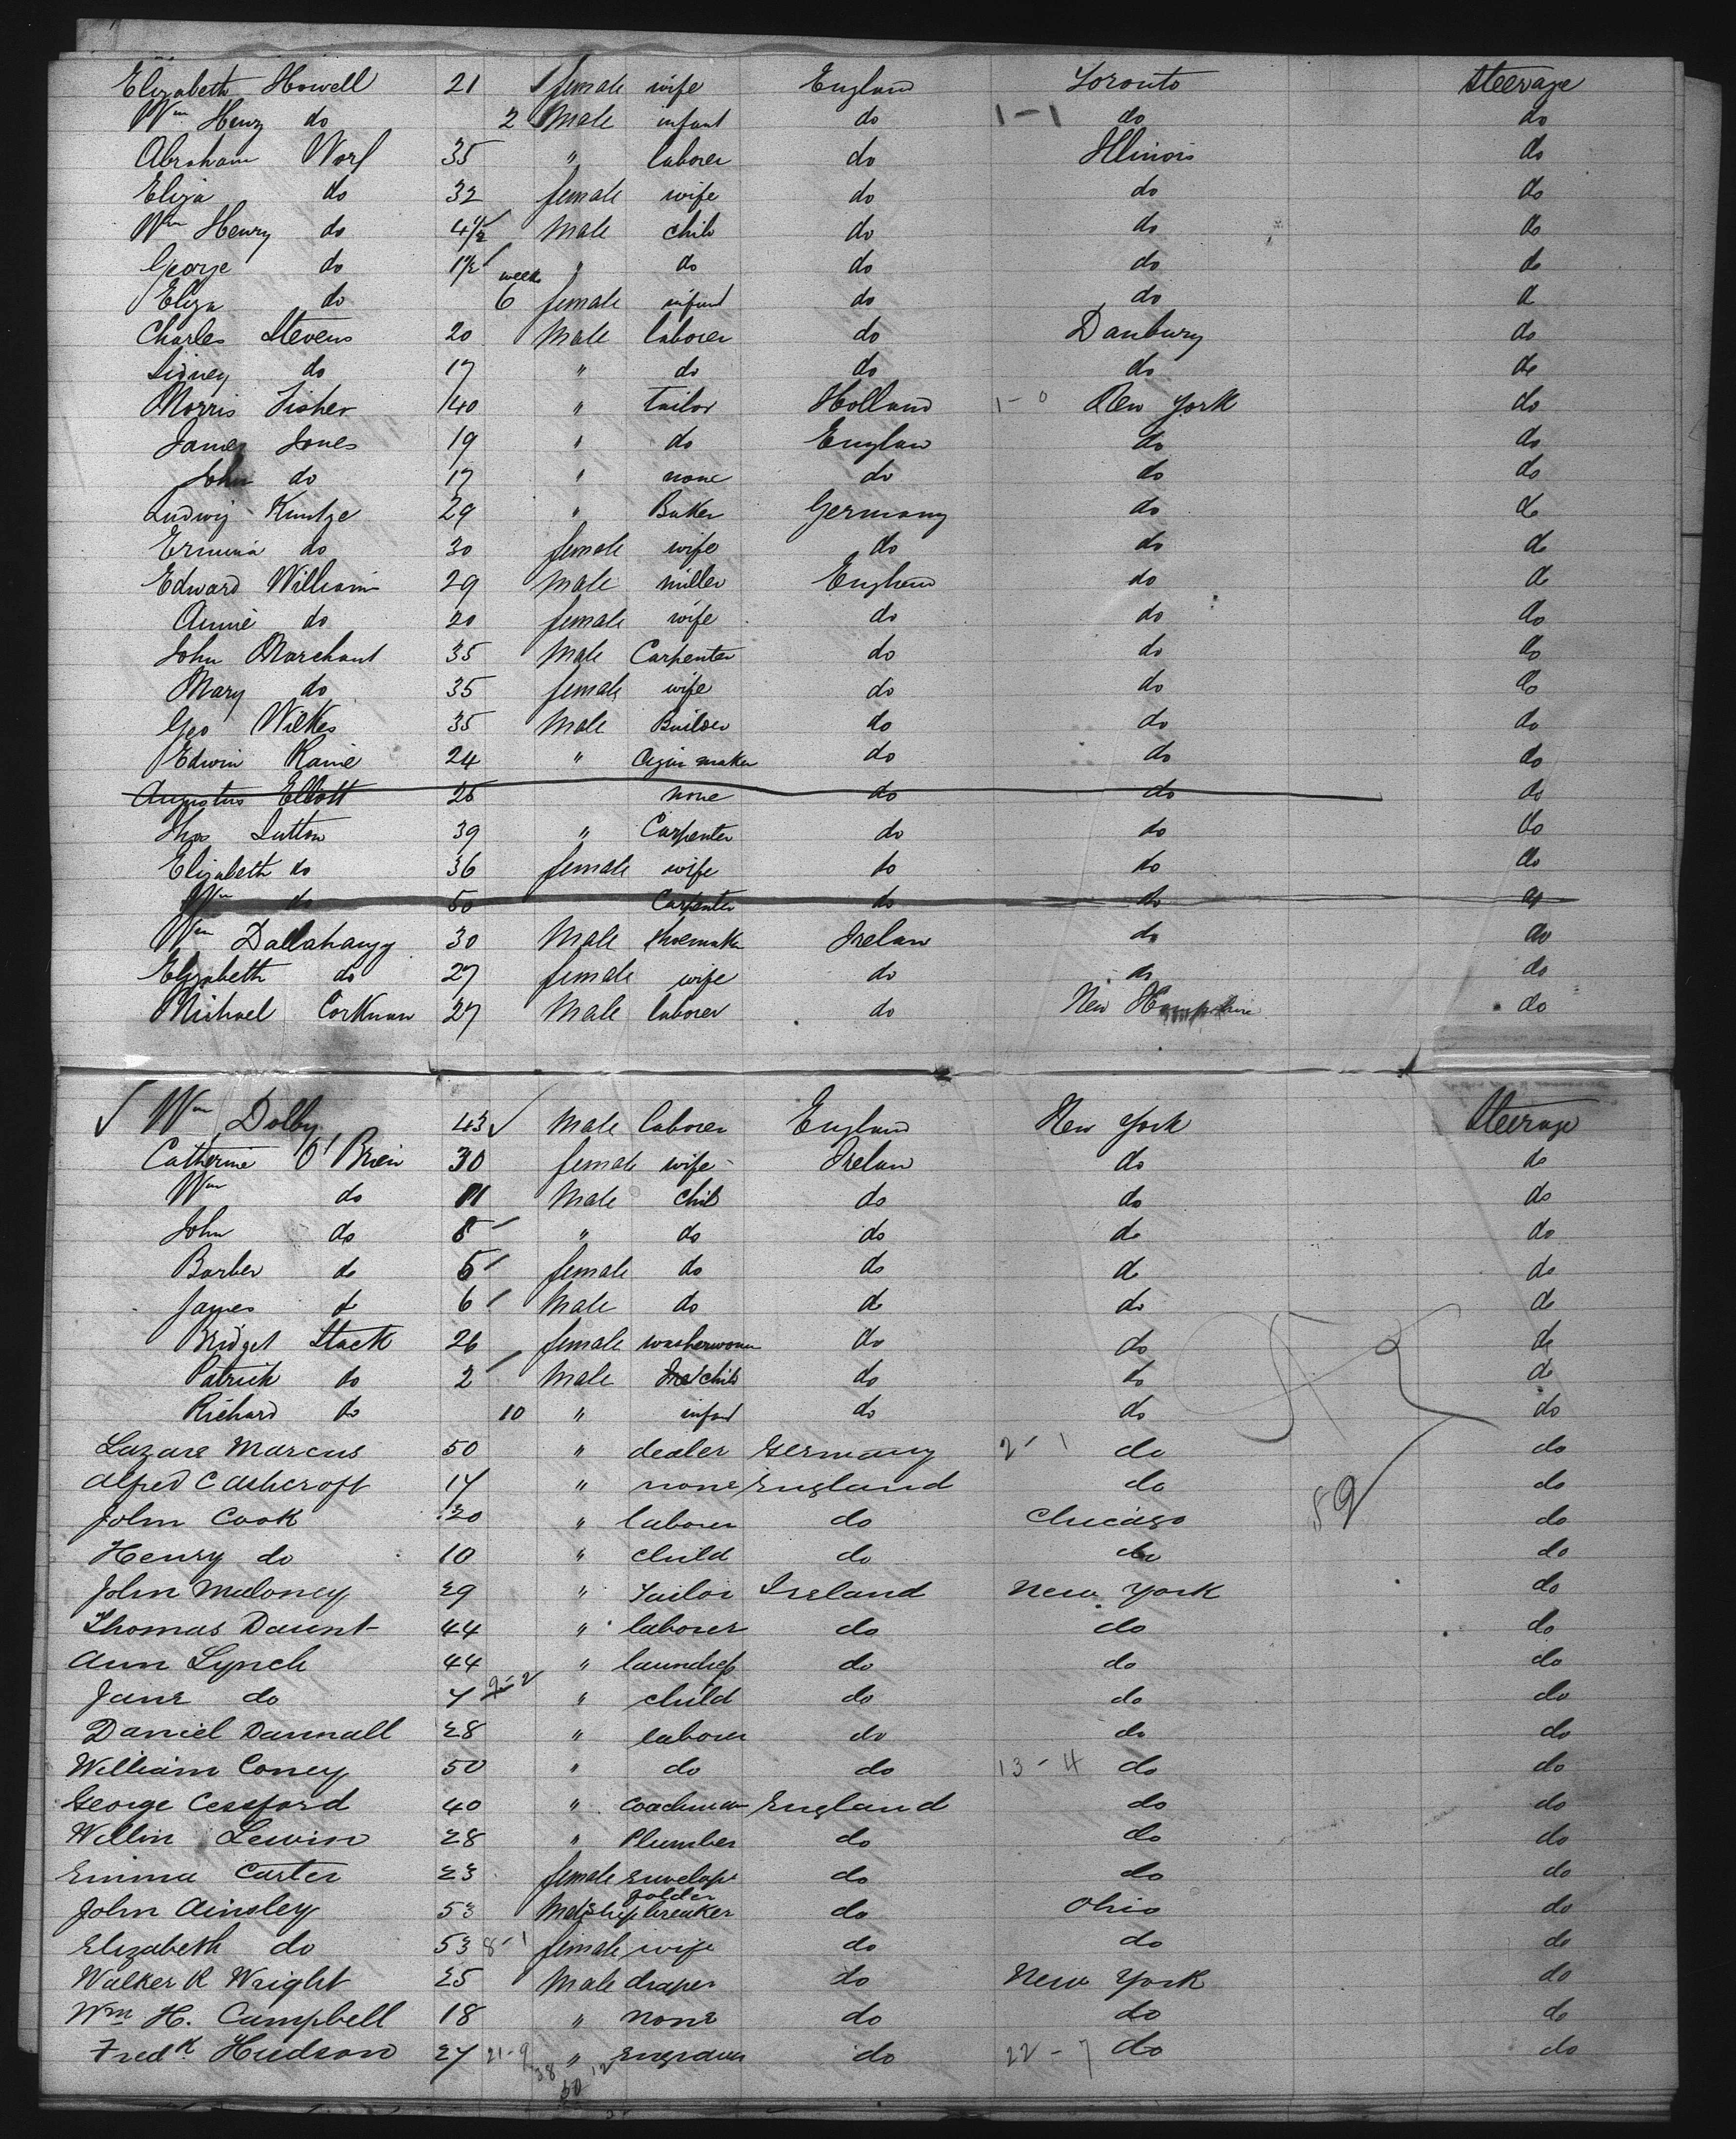 Elizabeth Howell 21 female wife England Toronto Steerage
Wm Henry do 2 Male infant do 1-1 do do
Abraham Worf 35 " laborer do Illinois do
Eliza do 32 female wife do do do
Wm Henry do 4 1/2 Male child do do do
George do 1 1/2 " do do do do
Eliza do weeks 6 female infant do do d
Charles Stevens 20 Male laborer do Danbury do
Sidney do 17 " do do do do
Morris Fisher 40 " Tailor Holland 1-0 New York do
James Jones 19 " do England do do
John do 17 " none do do do
Ludwig Kuntze 29 " Baker Germany do do
Ermina do 30 female wife do do do
Edward William 29 Male miller England do do
Annie do 20 female wife do do do
John Marchant 35 Male Carpenter do do do
Mary do 35 female wife do do do
Geo Wilkes 35 Male Builder do do do
Edwin Raine 24 " Cigar maker do do do
Augustus Ellott 25 none do do do
Thos Sutton 39 " Carpenter do do do
Elizabeth do 36 female wife do do do
Wm do 50 Carpenter do do do
Wm Dallahaugy 30 Male Shoemaker Ireland do do
Elizabeth do 27 female wife do do do
Michael Corknan 27 Male laborer do New Hampshire do
✓ Wm Dolby 43 ✓ Male laborer England New York Steerage
Catherine O'Brien 30 female wife Ireland do do
Wm do 11 Male child do do do
John do 8 " do do do do
Barber do 5 female do do do do
James do 6 Male do do do do
Bridget Stack 26 female washerwoman do do do
Patrick do 2 Male child do do do
Richard do 10 " infant do do do
Lazare Marcus 50 " dealer Germany 2-1 do do
Alfred C Ashcroft 14 " none England do do
John Cook 20 " laborer do Chicago 59 do
Henry do 10 " child do do do
John Maloney 29 " Tailor Ireland New York do
Thomas Daunt 44 " laborer do do do
Ann Lynch 44 " laundress do do do
Jane do 7 " child do do do
Daniel Dannall 28 " laborer do do do
William Coney 50 " do do 13-4 do do
George Cessford 40 " Coachman England do do
Willin Lewin 28 " Plumber do do do
Emma Carter 23 female Envelope folder do do do
John Ainsley 53 Male Shipbreaker do Ohio do
Elizabeth do 53 8-1 female wife do do do
Walker R Wright 25 Male draper do New York do
Wm H. Campbell 18 " none do do do
Fredk Hudson 27 21-9 " Engraver do 22-7 do do
38 12
50